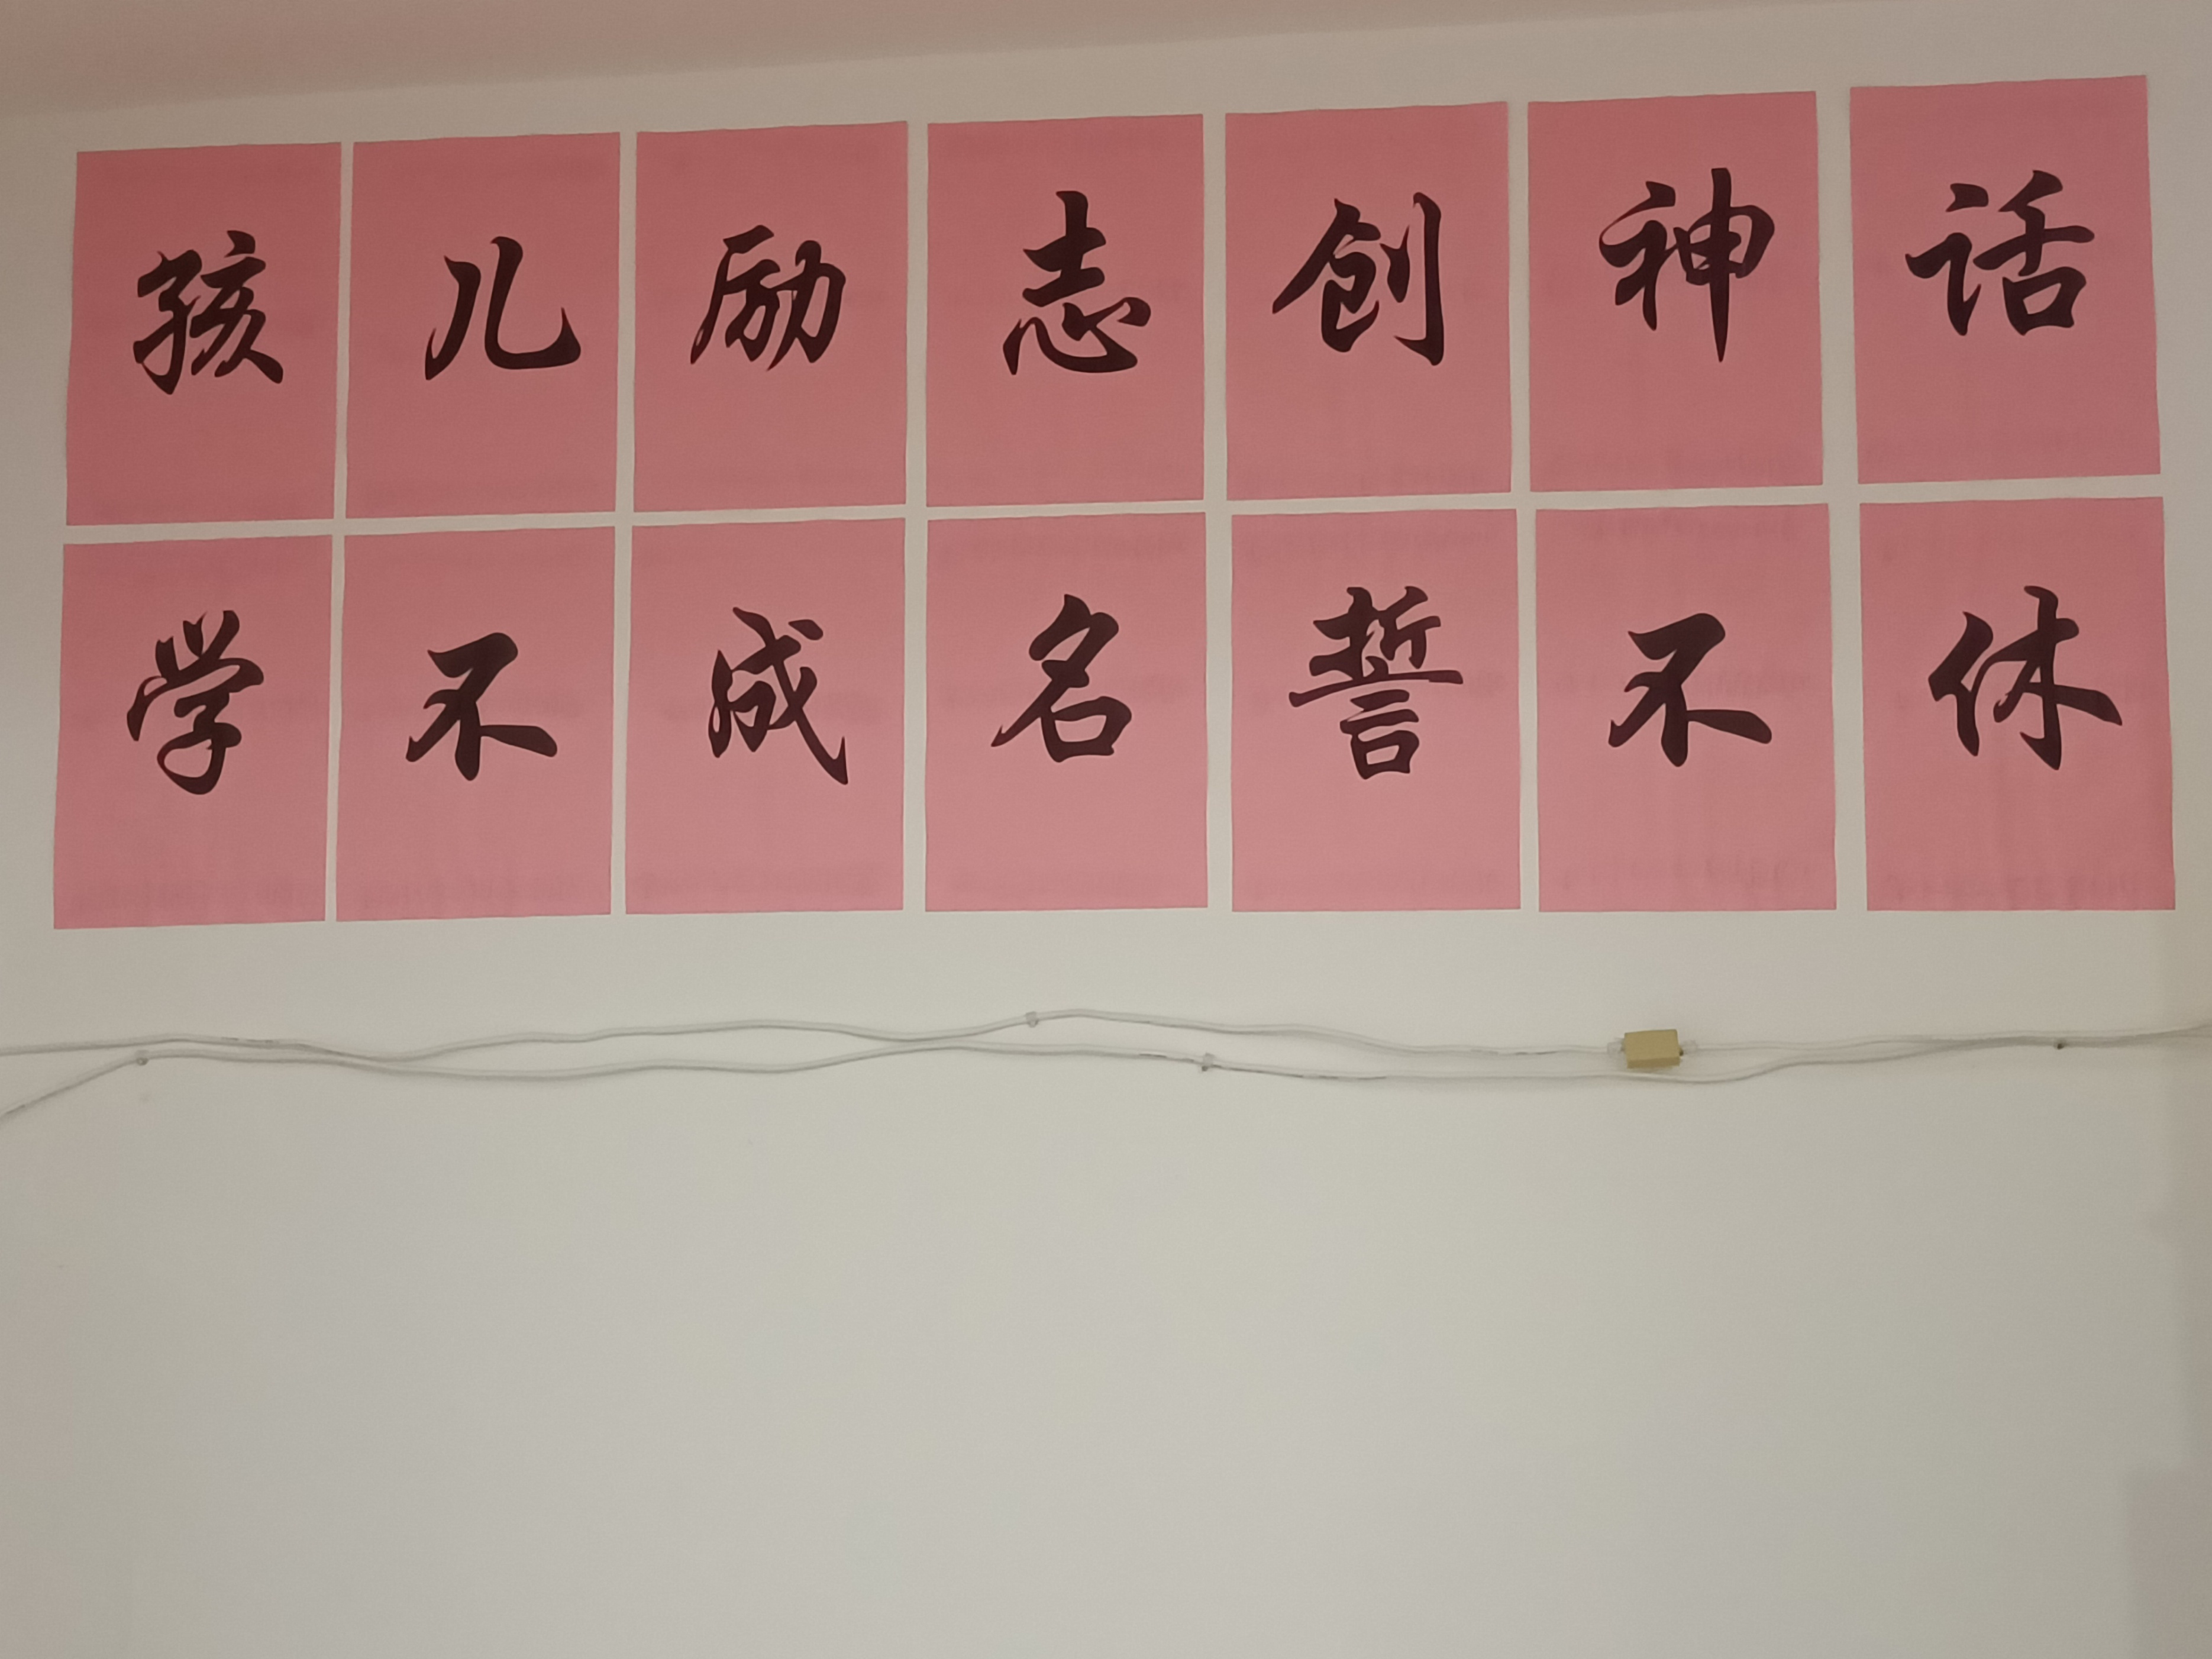 孩儿励志创神话
学不成名誓不休